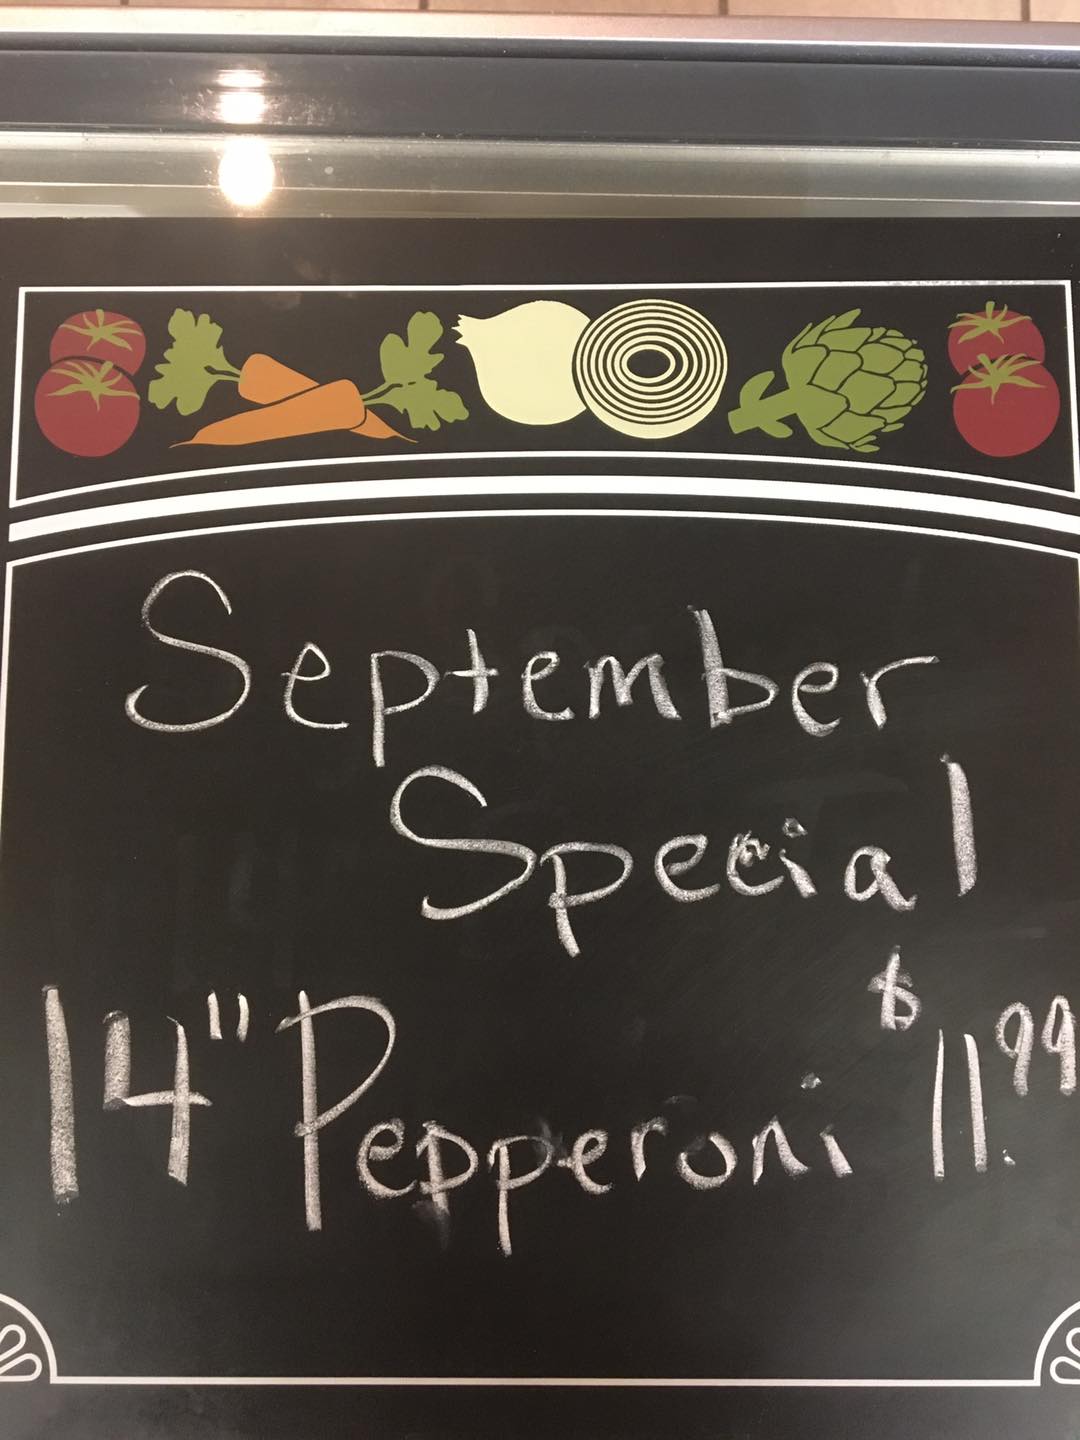 September
Special
14" Pepperoni $11.99